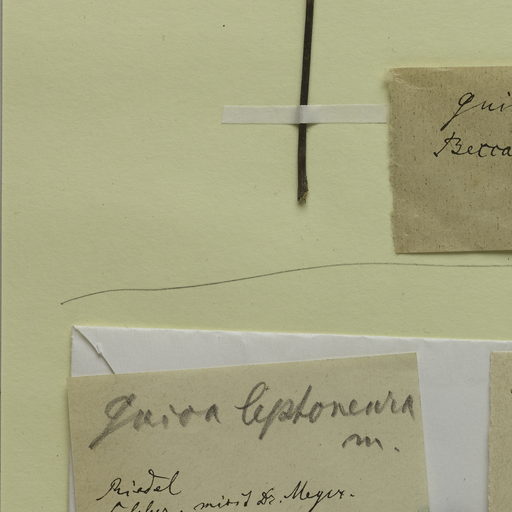 Gui
Becca
Guioa leptoneura
m.
Riedel
Celebes. misit Dr. Meyer.